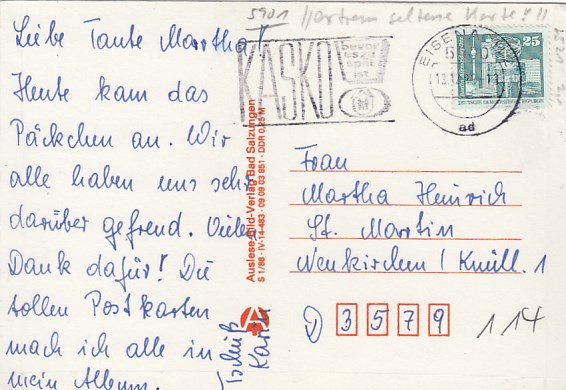 5901 extrem seltene Karte!!!
Liebe Tante Martha!
Heute kam das
Päckchen an. Wir
alle haben uns sehr
darüber gefreut. Vielen
Dank dafür! Die
tollen Postkarten
mach ich alle in
mein Album.
Tschüß
Karin
KASKO
bevor
es zu
spät
ist
EISENA
13.12
ad
25
DEUTSCHE DEMOKRATISCHE REPUBLIK
Auslese-Bild-Verlag Bad Salzungen
S 1/88 · IV-14-483 · 09 09 03 851 · DDR 0,25 M
Frau
Martha Heinrich
St. Martin
Neukirchen / Knüll. 1
D 3579
114